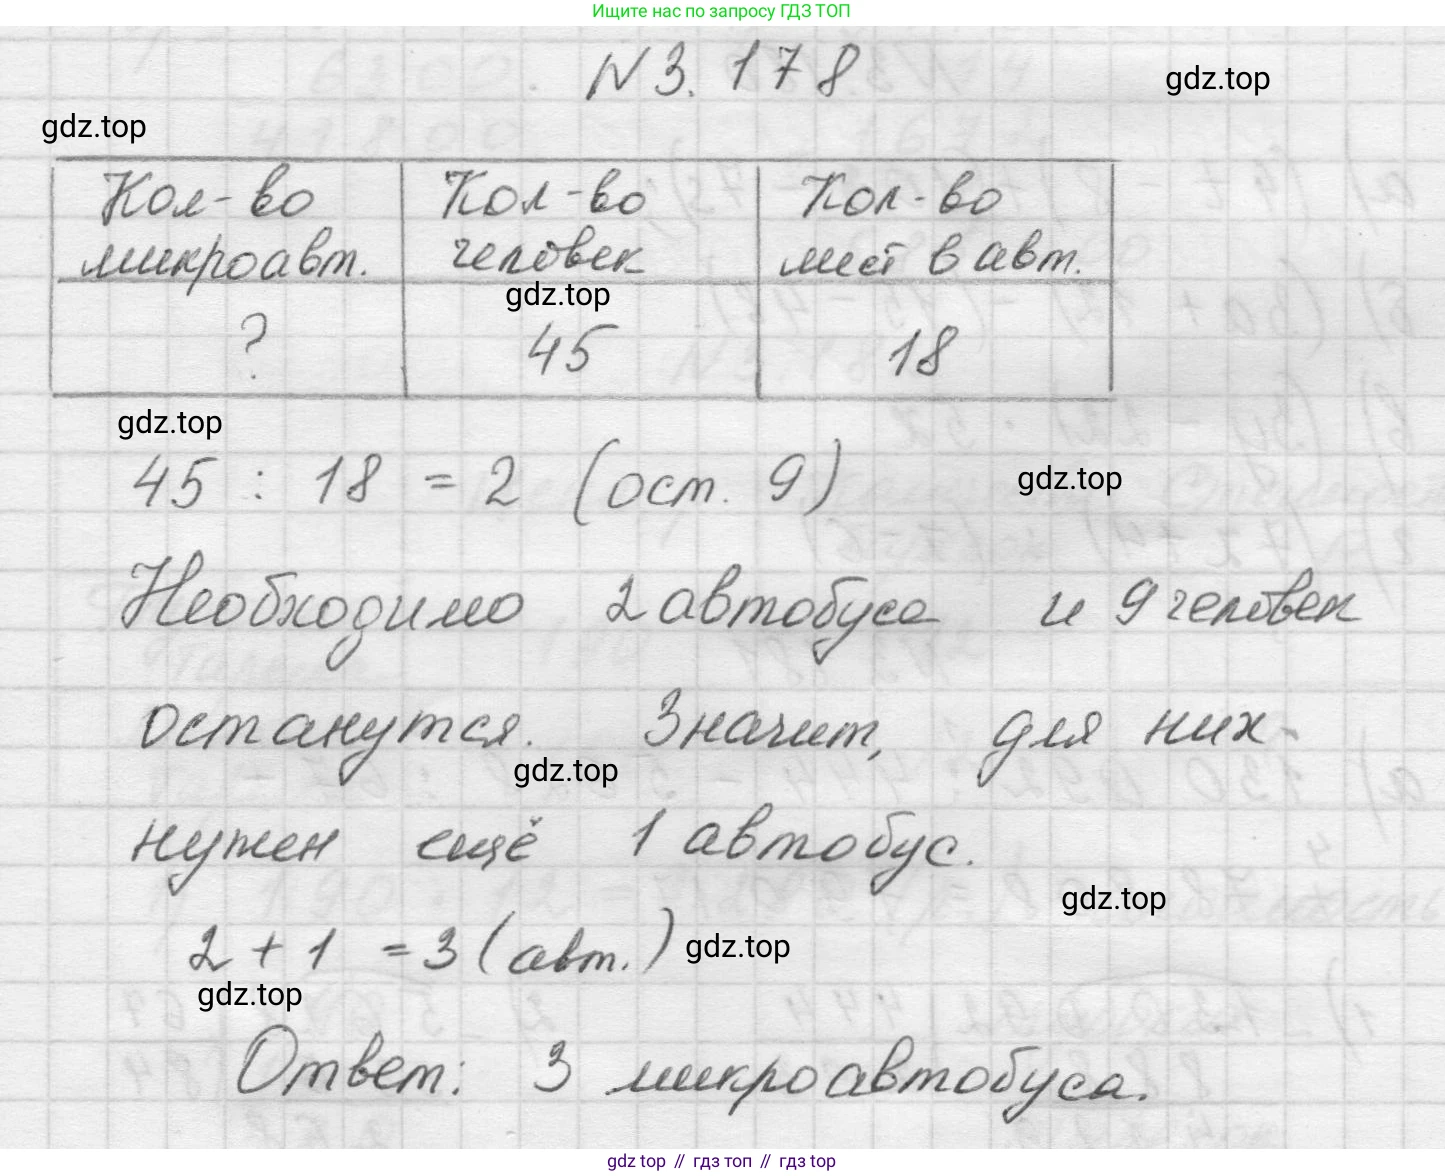 Ищите нас по запросу ГДЗ ТОП
N 3. 178
gdz.top
gdz.top
Кол-во микроавт. Кол-во человек Кол-во мест в авт.
gdz.top
? 45 18
gdz.top
45 : 18 = 2 (ост. 9)
gdz.top
Необходимо 2 автобуса и 9 человек
останутся. Значит, для них
gdz.top
нужен ещё 1 автобус.
gdz.top
2 + 1 = 3 (авт.)
gdz.top
gdz.top
Ответ: 3 микроавтобуса.
gdz top // гдз топ // гдз top